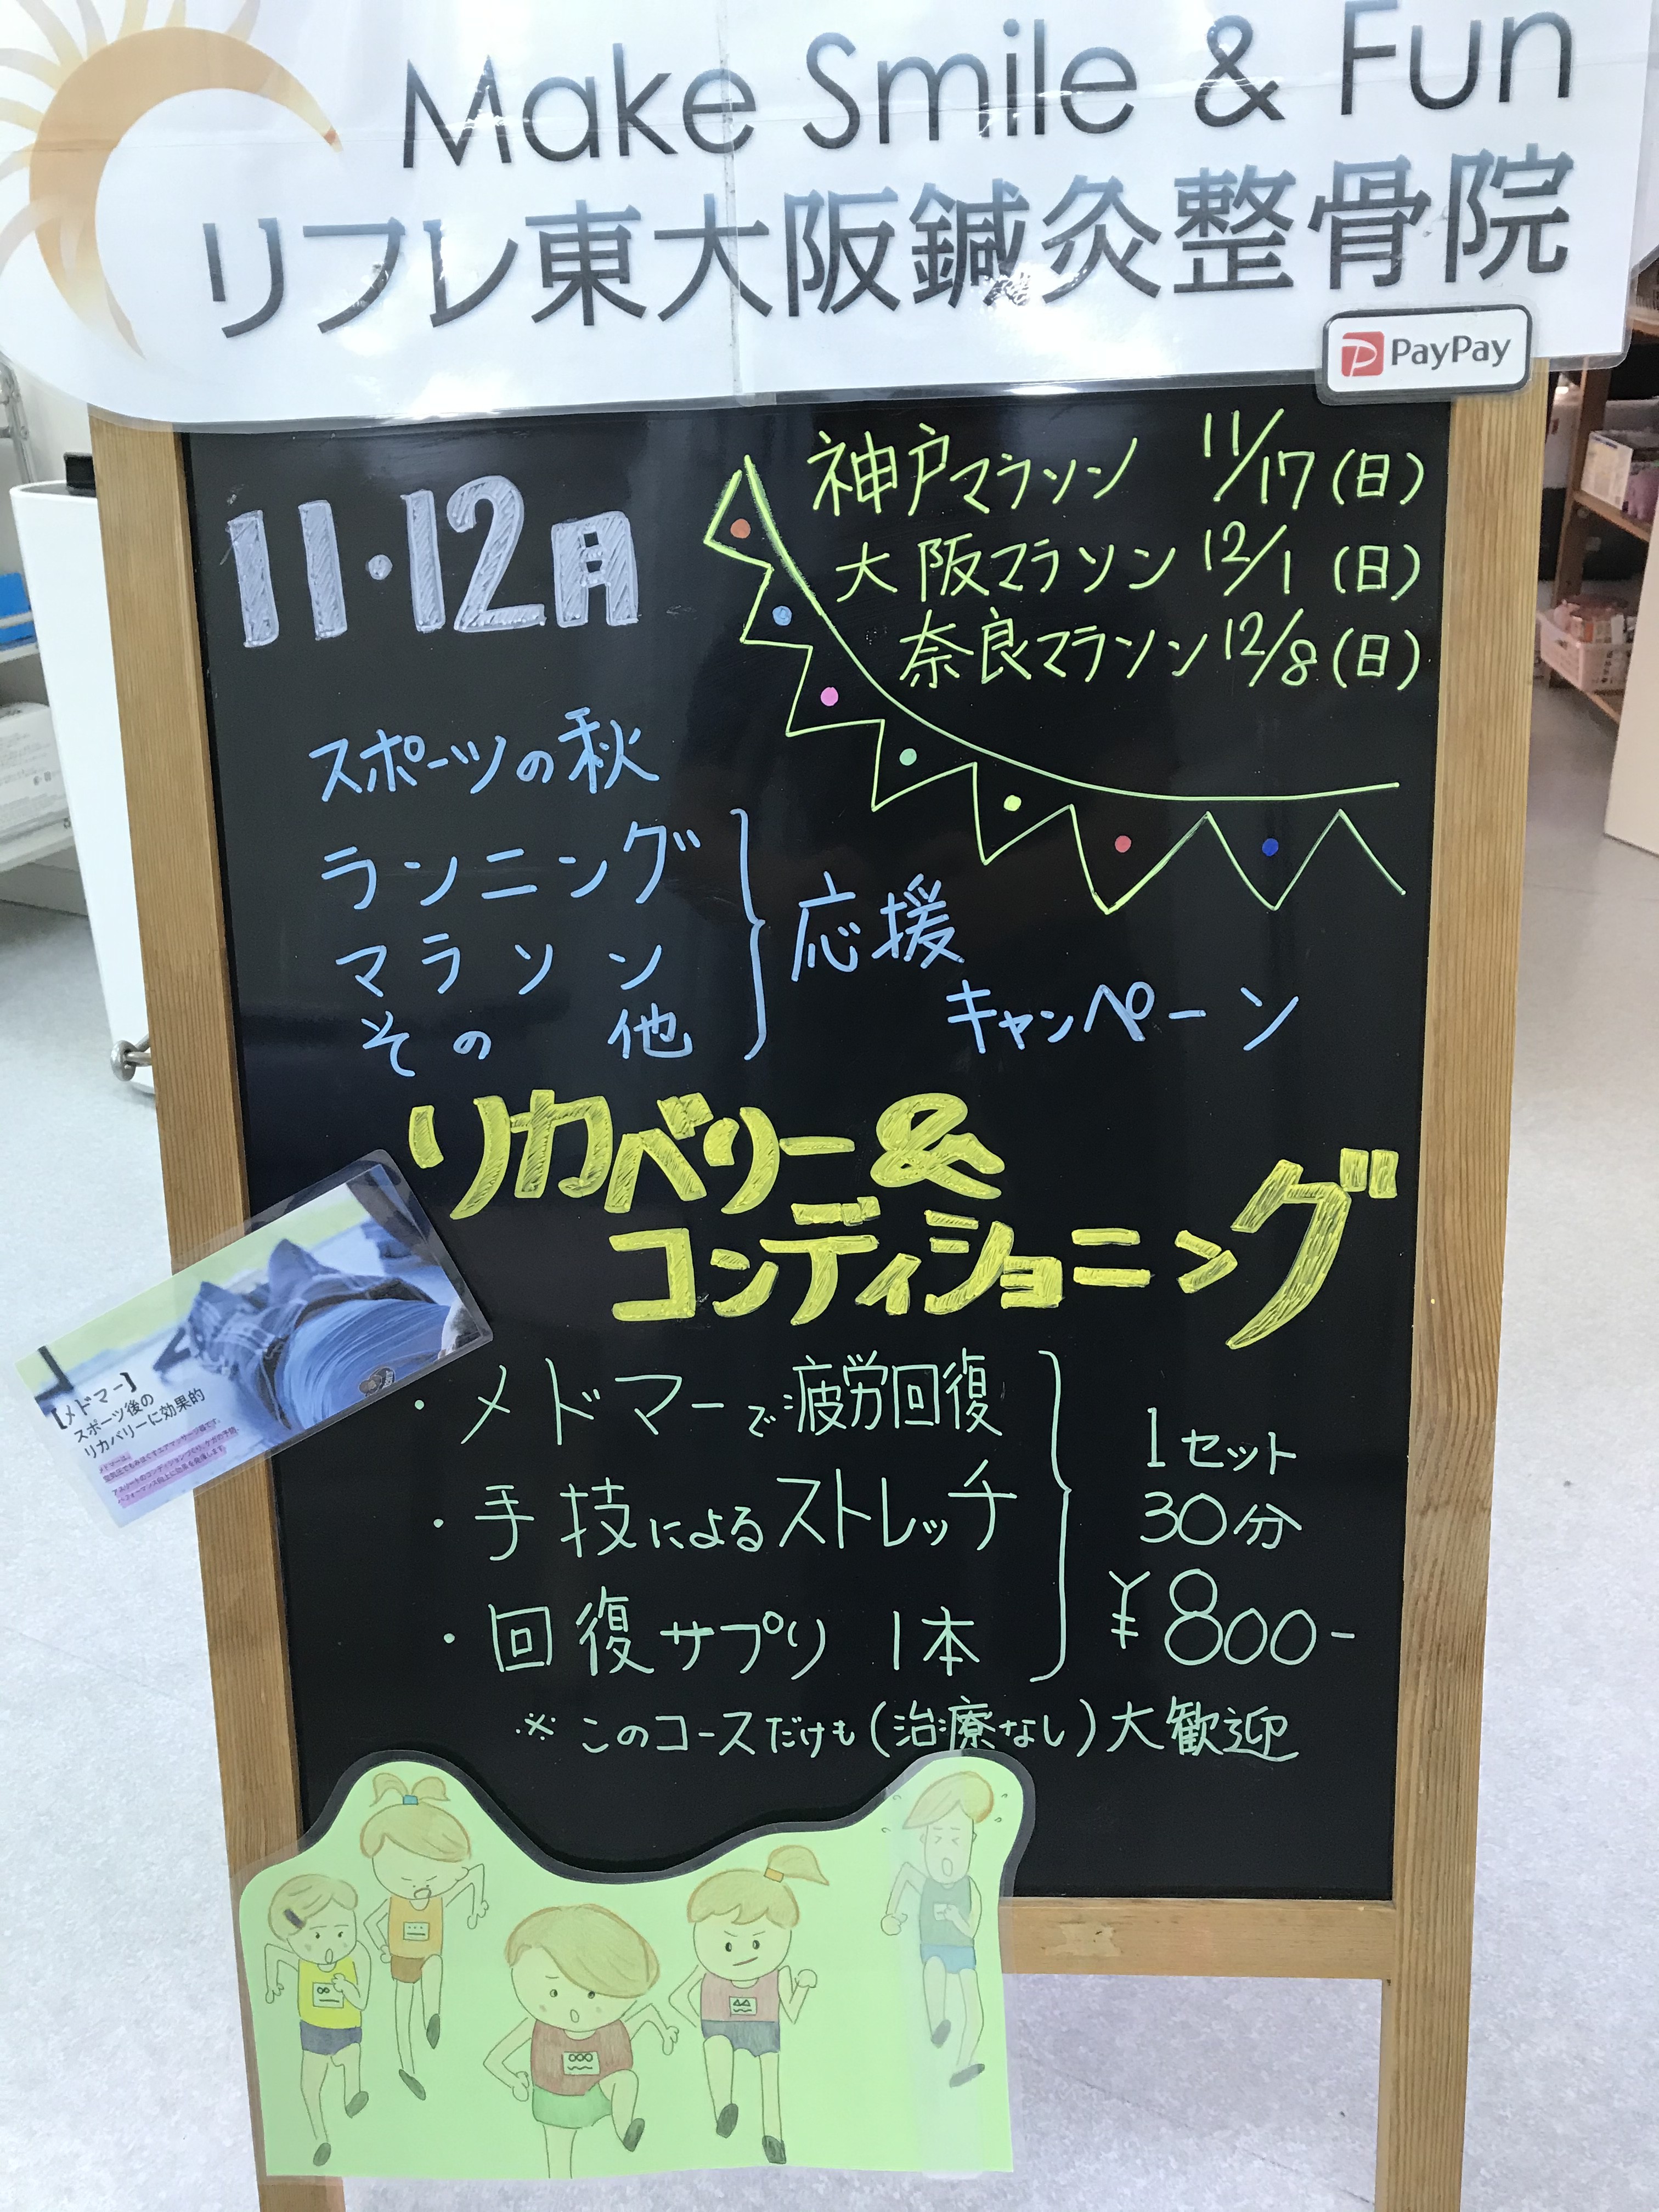 Make Smile & Fun
リフレ東大阪鍼灸整骨院
PayPay
11・12月
神戸マラソン 11/17(日)
大阪マラソン 12/1(日)
奈良マラソン 12/8(日)
スポーツの秋
ランニング
マラソン
その他
応援
キャンペーン
リカバリー&
コンディショニング
【メドマー】
スポーツ後の
リカバリーに効果的
・メドマーで疲労回復
・手技によるストレッチ
・回復サプリ 1本
1セット
30分
¥800-
※このコースだけも(治療なし)大歓迎